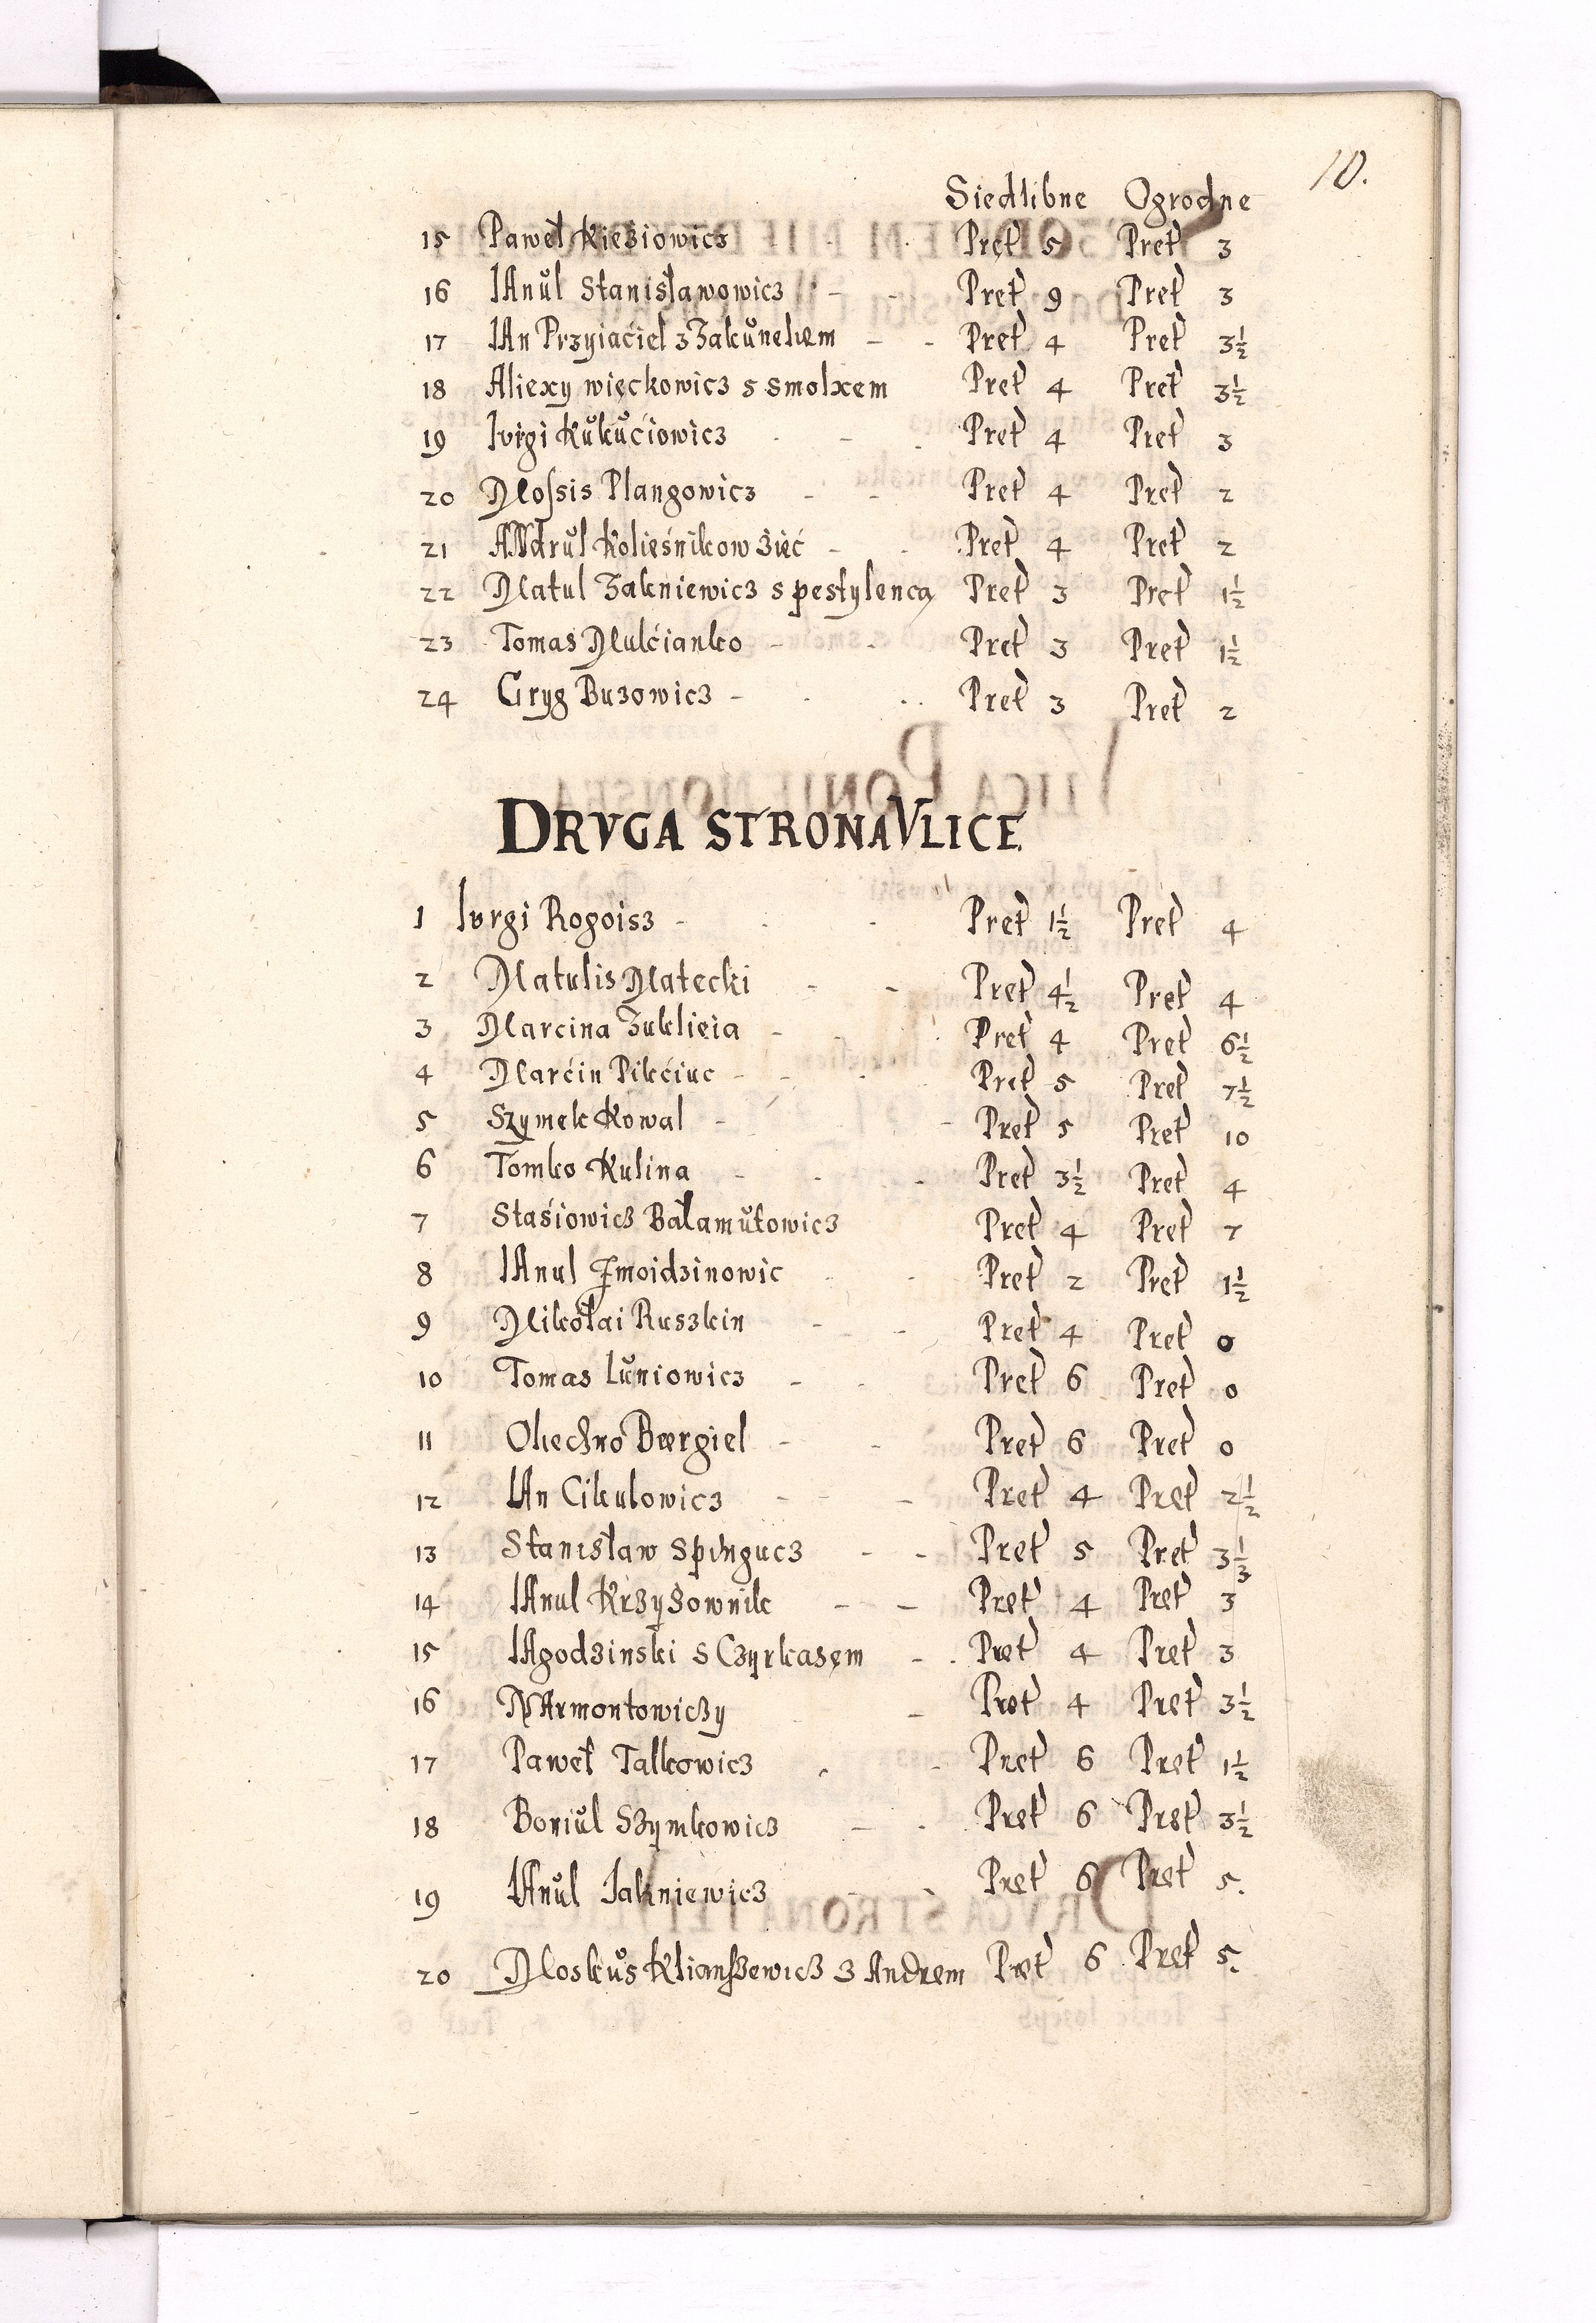 10.
Siedlibne Ogrodne
15 Paweł Kieziowicz - . Pręt 5 Pręt 3
16 IAnul Stanisławowicz - - Pręt 9 Pręt 3
17 IAn Przyiaciel z Zakunelem - - Pręt 4 Pręt 3½
18 Aliexy więckowicz s smolxem Pręt 4 Pręt 3½
19 Ivrgi Kukuciowicz - - Pręt 4 Pręt 3
20 Mossis Plangowicz - - Pręt 4 Pręt 2
21 ANdrul Kolieśnikow Zięć - - Pręt 4 Pręt 2
22 Matul Zakniewicz s pestylencą Pręt 3 Pręt 1½
23 Tomas Mulcianko - - Pręt 3 Pręt 1½
24 Gryg Buzowicz - . . Pręt 3 Pręt 2
DRVGA STRONA VLICE
1 Ivrgi Rogoisz - - Pręt 1½ Pręt 4
2 Matulis Matecki - - Pręt 4½ Pręt 4
3 Marcina Zuklieia - - Pręt 4 Pręt 6½
4 Marcin Pikciuc - - Pręt 5 Pręt 7½
5 Szymek Kowal - - Pręt 5 Pręt 10
6 Tomko Kulina - - Pręt 3½ Pręt 4
7 Stasiowicz Bałamutowicz Pręt 4 Pręt 7
8 IAnul Zmoidzinowic - Pręt 2 Pręt 1½
9 Mikołai Ruszkin - - Pręt 4 Pręt 0
10 Tomas Luniowicz - - Pręt 6 Pręt 0
11 Olechno Bergiel - - Pręt 6 Pręt 0
12 IAn Cikulowicz - - Pręt 4 Pręt 2½
13 Stanisław Spinguc3 - - Pręt 5 Pręt 3⅓
14 IAnul Krzyżownik - - Pręt 4 Pręt 3
15 IAgodzinski s Czyrkasem - . Pręt 4 Pręt 3
16 NArmontowiczy - Pręt 4 Pręt 3½
17 Paweł Talkowicz . - Pręt 6 Pręt 1½
18 Boriul Szymkowicz - . Pręt 6 Pręt 3½
19 IAnul Iakniewicz - - Pręt 6 Pręt 5.
20 Moskus Klianszewicz z Andrem Pręt 6 Pręt 5.